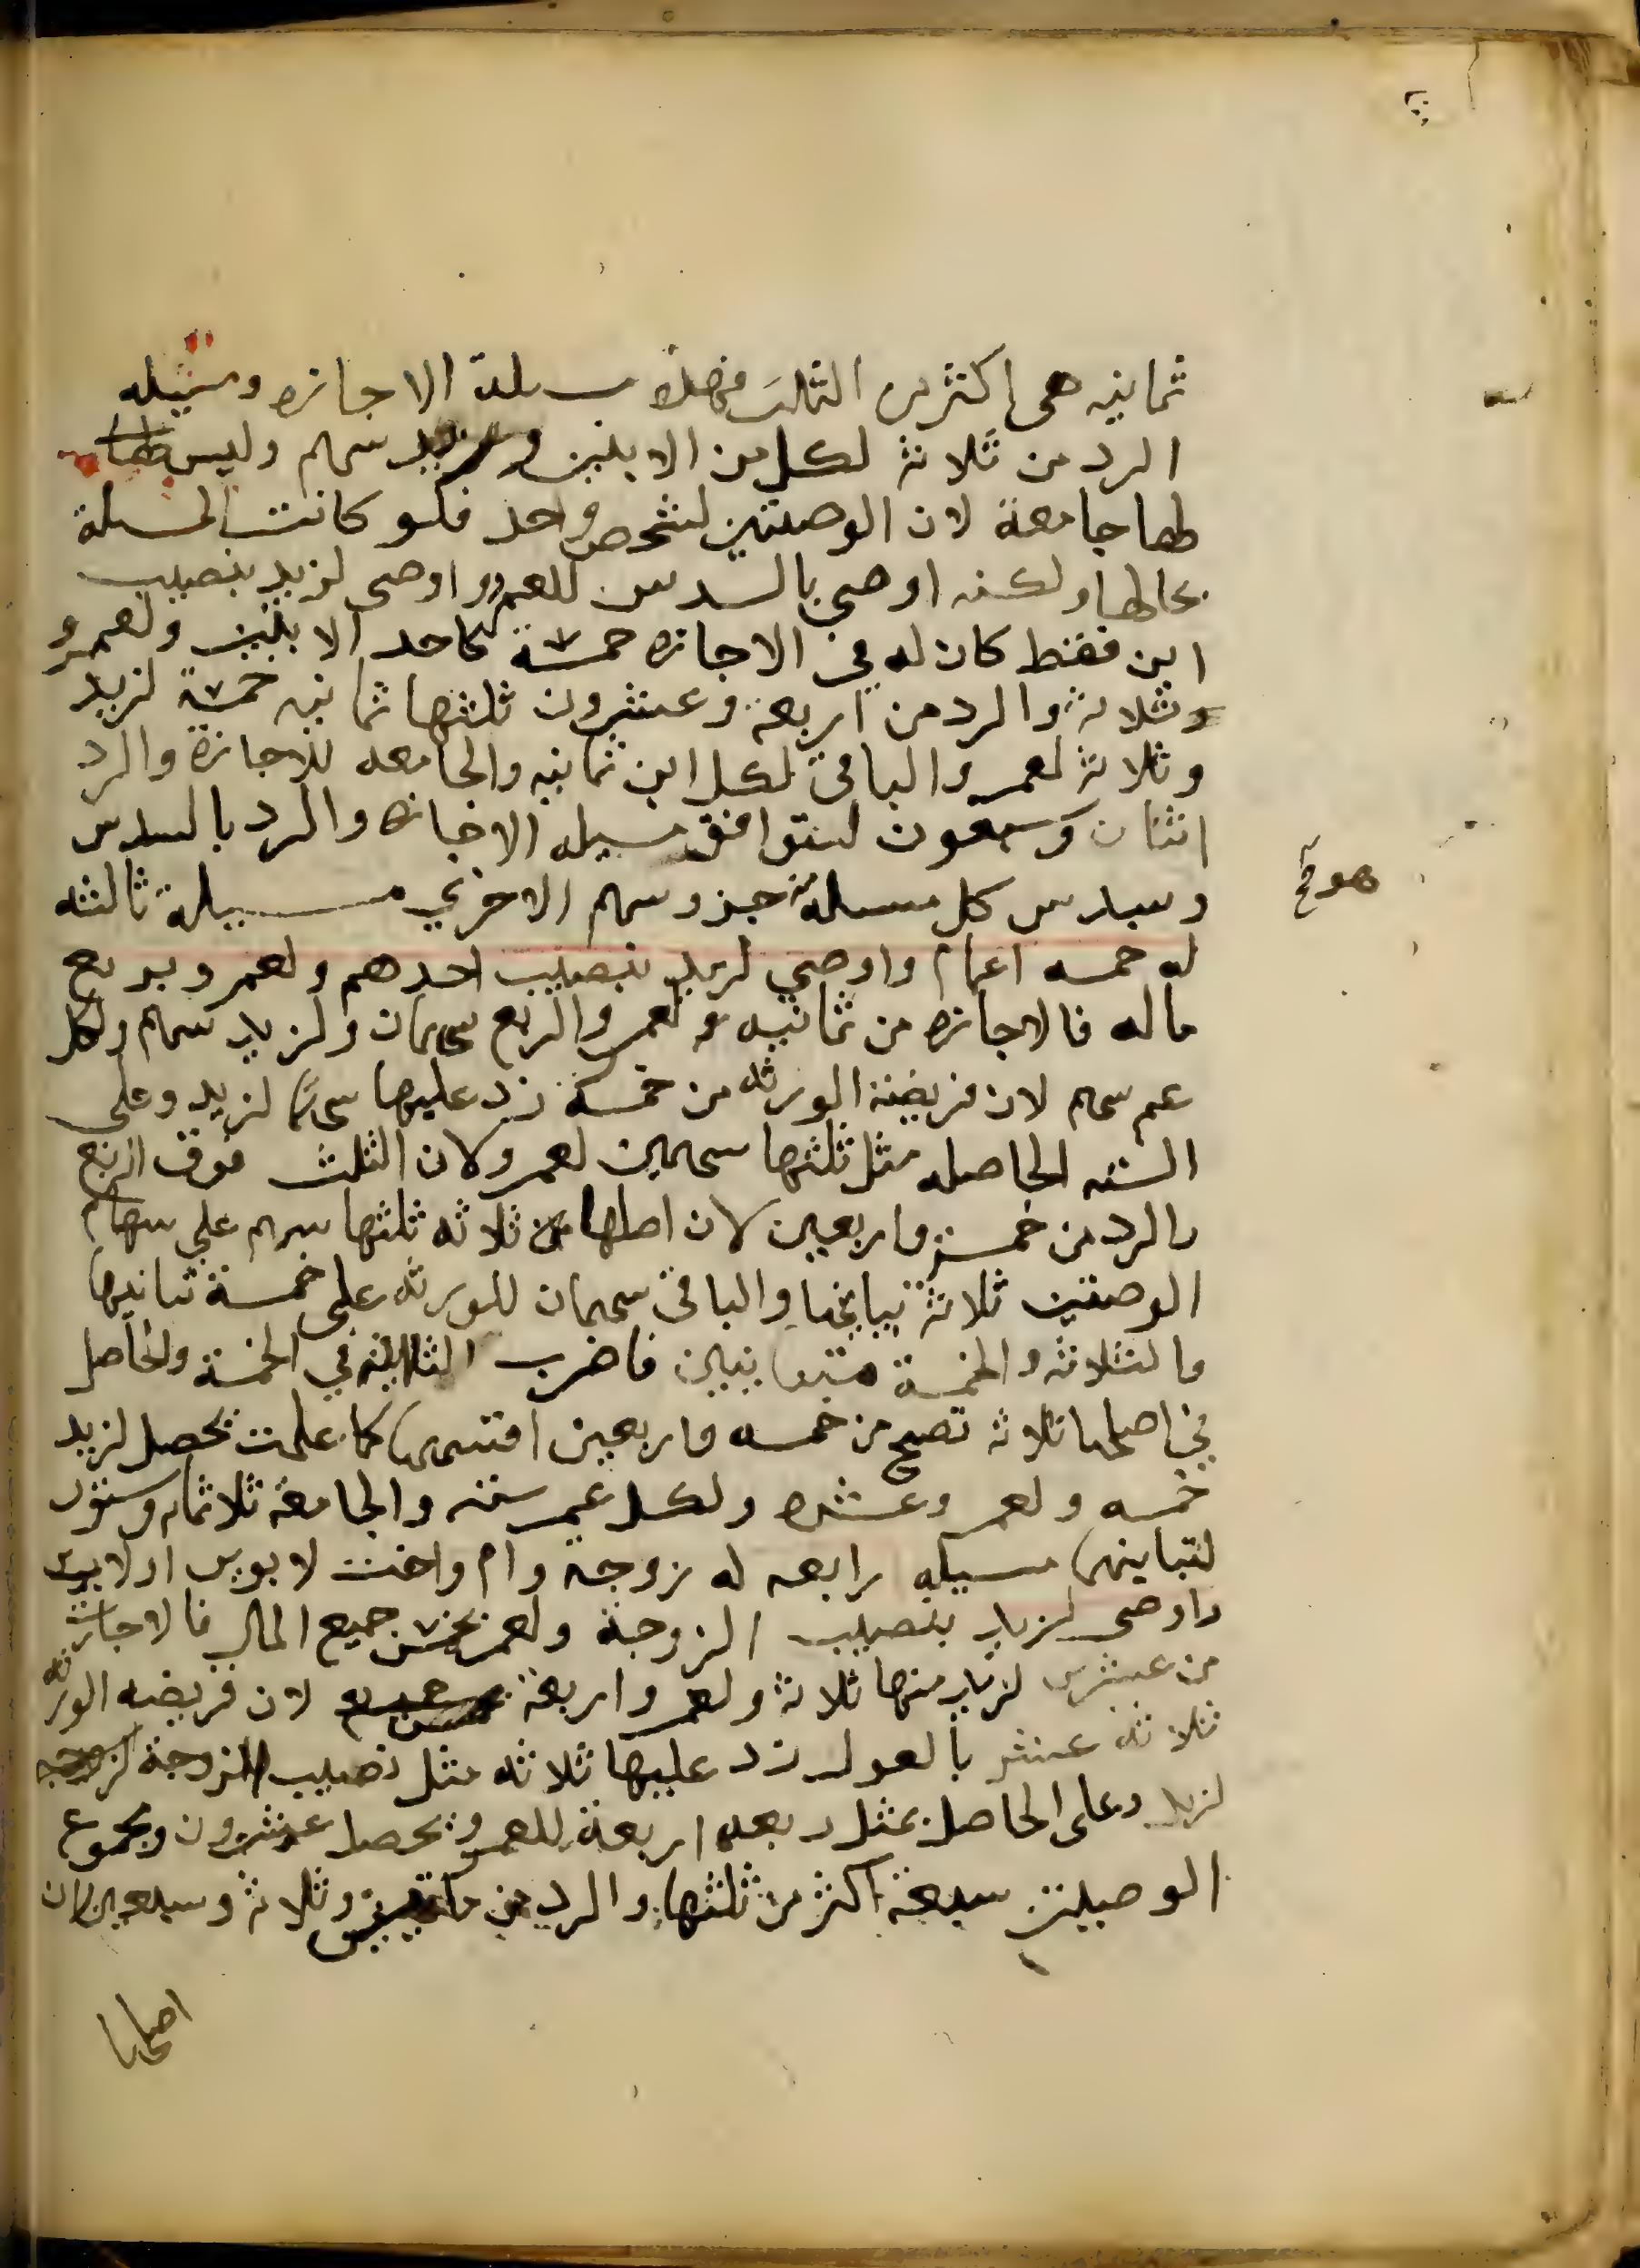 ثمانيه هى اكثر من الثلث فهذه مسئلة الاجازه ومسيله
الرد من ثلاثة لكل من الابنين وزيد سهم وليس
لهما جامعة لان الوصيتين لشخص واحد فلو كانت المسلة
بحالها ولكنه اوصى بالسدس للعمرو واوصى لزيد بنصيب
ابن فقط كان له في الاجازه خمسة كاحد الابنين ولعمرو
ثلاثة والرد من اربعة وعشرون ثلثها ثمانيه خمسة لزيد
وثلاثة لعمرو الباقي لكل ابن ثمانيه والجامعه للاجازة والرد
اثنان وسبعون لتوافق مسيله الاجازه والرد بالسدس
وسدس كل مسلة جزو سهم الاخري مسيلة ثالثه
له خمسه اعمام واوصي لزيد بنصيب احدهم ولعمرو بربع
ماله فالاجازه من ثمانيه لعمرو الربع سهمان ولزيد سهم ولكل
عم سهم لان فريضة الورثه من خمسة زد عليها سهما لزيد وعلى
السته الحاصله مثل ثلثها سهمين لعمرو لان الثلث فوق الربع
والرد من خمسة واربعين لان اصلها من ثلاثه ثلثها سهم على سهام
الوصتين ثلاثة تباينها والباقي سهمان للورثه على خمسة تباينها
والثلاثه والخمسة متباينين فاضرب الثلاثه في الخمسة والحاصل
في اصلها ثلاثه تصح من خمسه واربعين اقتسمها كما علمت يحصل لزيد
خمسه ولعمرو عشره ولكل عم سته والجامعة ثلاثمايه وستون
لتباينهما مسيله رابعه له زوجة وام واخت لابوين او لاب
واوصى لزيد بنصيب الزوجة ولعمرو بخمس جميع المال فالاجازة
من عشرين لزيد منها ثلاثة ولعمرو اربعة لان فريضه الورثه
ثلاثه عشر بالعول زد عليها ثلاثه مثل نصيب الزوجة
لزيد وعلى الحاصل بمثل ربعه اربعة للعمرو يحصل عشرون ومجموع
الوصيتين سبعة اكثر من ثلثها والرد من مايتين وثلاثة وسبعين لان
اصلها